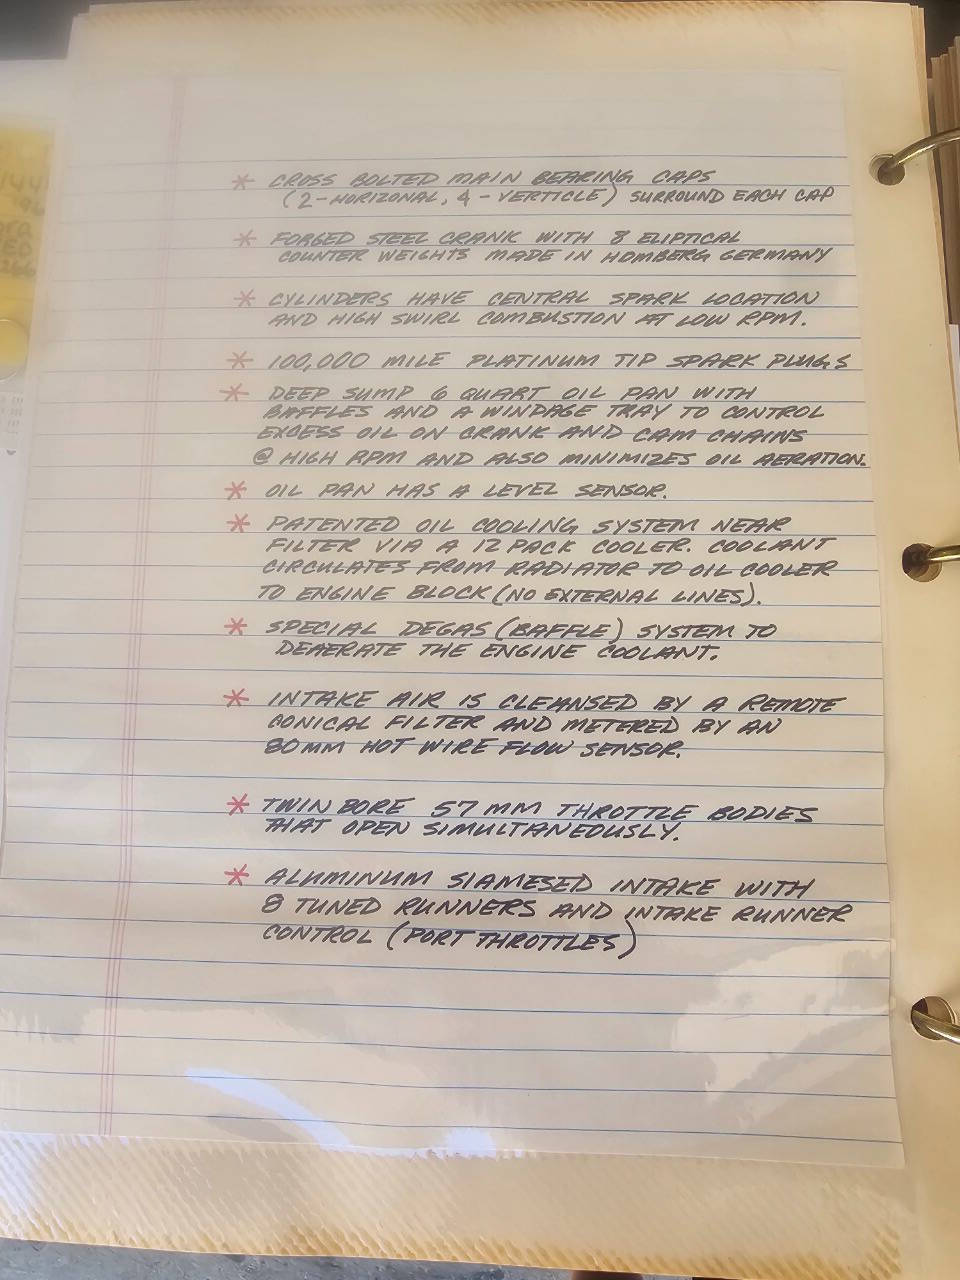 * CROSS BOLTED MAIN BEARING CAPS
(2-HORIZONAL, 4-VERTICLE) SURROUND EACH CAP
* FORGED STEEL CRANK WITH 8 ELIPTICAL
COUNTER WEIGHTS MADE IN HOMBERG GERMANY
* CYLINDERS HAVE CENTRAL SPARK LOCATION
AND HIGH SWIRL COMBUSTION AT LOW RPM.
* 100,000 MILE PLATINUM TIP SPARK PLUGS
* DEEP SUMP 6 QUART OIL PAN WITH
BAFFLES AND A WINDAGE TRAY TO CONTROL
EXCESS OIL ON CRANK AND CAM CHAINS
@ HIGH RPM AND ALSO MINIMIZES OIL AERATION.
* OIL PAN HAS A LEVEL SENSOR.
* PATENTED OIL COOLING SYSTEM NEAR
FILTER VIA A 12 PACK COOLER. COOLANT
CIRCULATES FROM RADIATOR TO OIL COOLER
TO ENGINE BLOCK (NO EXTERNAL LINES).
* SPECIAL DEGAS (BAFFLE) SYSTEM TO
DEAERATE THE ENGINE COOLANT.
* INTAKE AIR IS CLEANSED BY A REMOTE
CONICAL FILTER AND METERED BY AN
80MM HOT WIRE FLOW SENSOR.
* TWIN BORE 57 MM THROTTLE BODIES
THAT OPEN SIMULTANEOUSLY.
* ALUMINUM SIAMESED INTAKE WITH
8 TUNED RUNNERS AND INTAKE RUNNER
CONTROL (PORT THROTTLES)